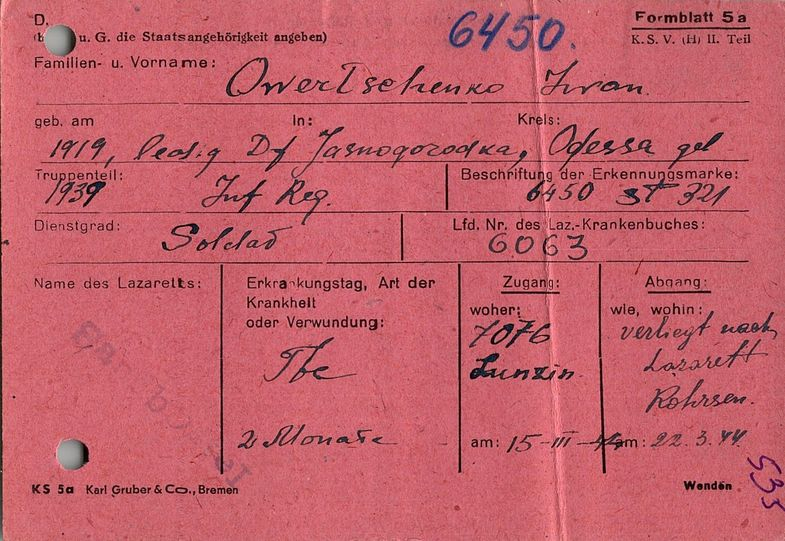 D,
6450.
Formblatt 5a
u. G. die Staatsangehörigkeit angeben)
K. S. V. (H) II. Teil
Familien- u. Vorname:
Owertschenko Iwan.
geb. am In: Kreis:
1919, ledig Df Jasnogorodka, Odessa gel
Truppenteil: Beschriftung der Erkennungsmarke:
1939 Inf Reg. 6450 st 321
Dienstgrad: Lfd. Nr. des Laz.-Krankenbuches:
Soldat 6063
Name des Lazaretts:
Erkrankungstag, Art der
Krankheit
oder Verwundung:
Tbc
2 Monate
Zugang:
woher:
7076
Lunzin.
am: 15-III-44
Abgang:
wie, wohin:
verliegt nach
Lazarett
Rohrsen.
am: 22.3.44
533
KS 5a Karl Gruber & Co., Bremen
Wenden